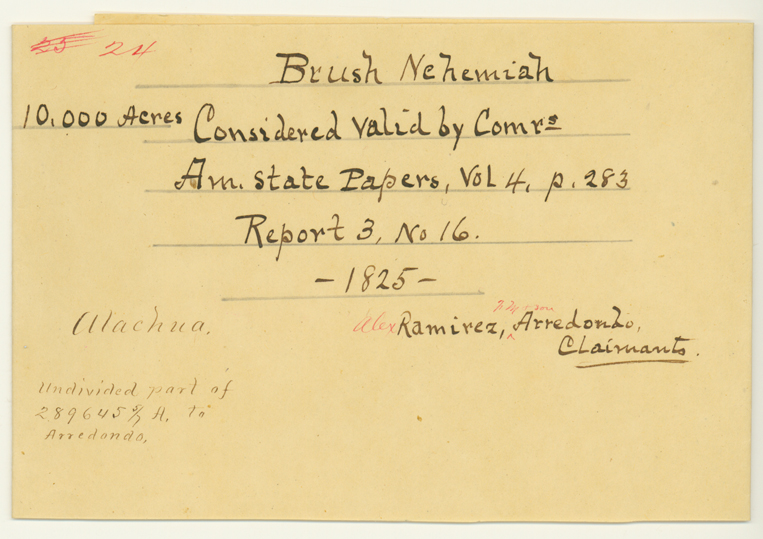 24
Brush Nehemiah
10,000 Acres Considered Valid by Comrs
Am. State Papers, Vol 4, p. 283
Report 3, No 16.
- 1825 -
Alachua.
Alex Ramirez, Arredondo,
Claimants.
Undivided part of
289645 5/7 A. to
Arredondo.